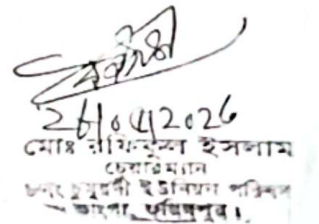 26/04/2026
মোঃ রফিকুল ইসলাম
চেয়ারম্যান
ইউনিয়ন পরিষদ
ভাংগা, ফরিদপুর।